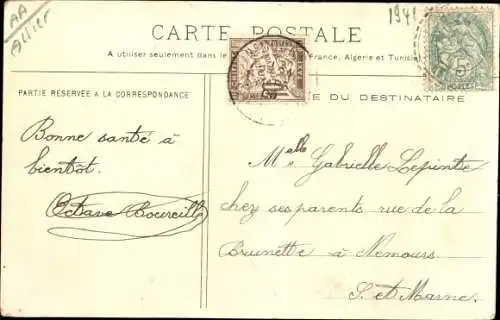 AA
Allier
1941
CARTE POSTALE
A utiliser seulement dans le France, Algérie et Tunisie
PARTIE RÉSERVÉE A LA CORRESPONDANCE
E DU DESTINATAIRE
5c
Bonne santé à
bientôt.
Octave Boureille
Melle Gabrielle Lepinte
chez ses parents rue de la
Brunette à Nemours.
S. et Marne.